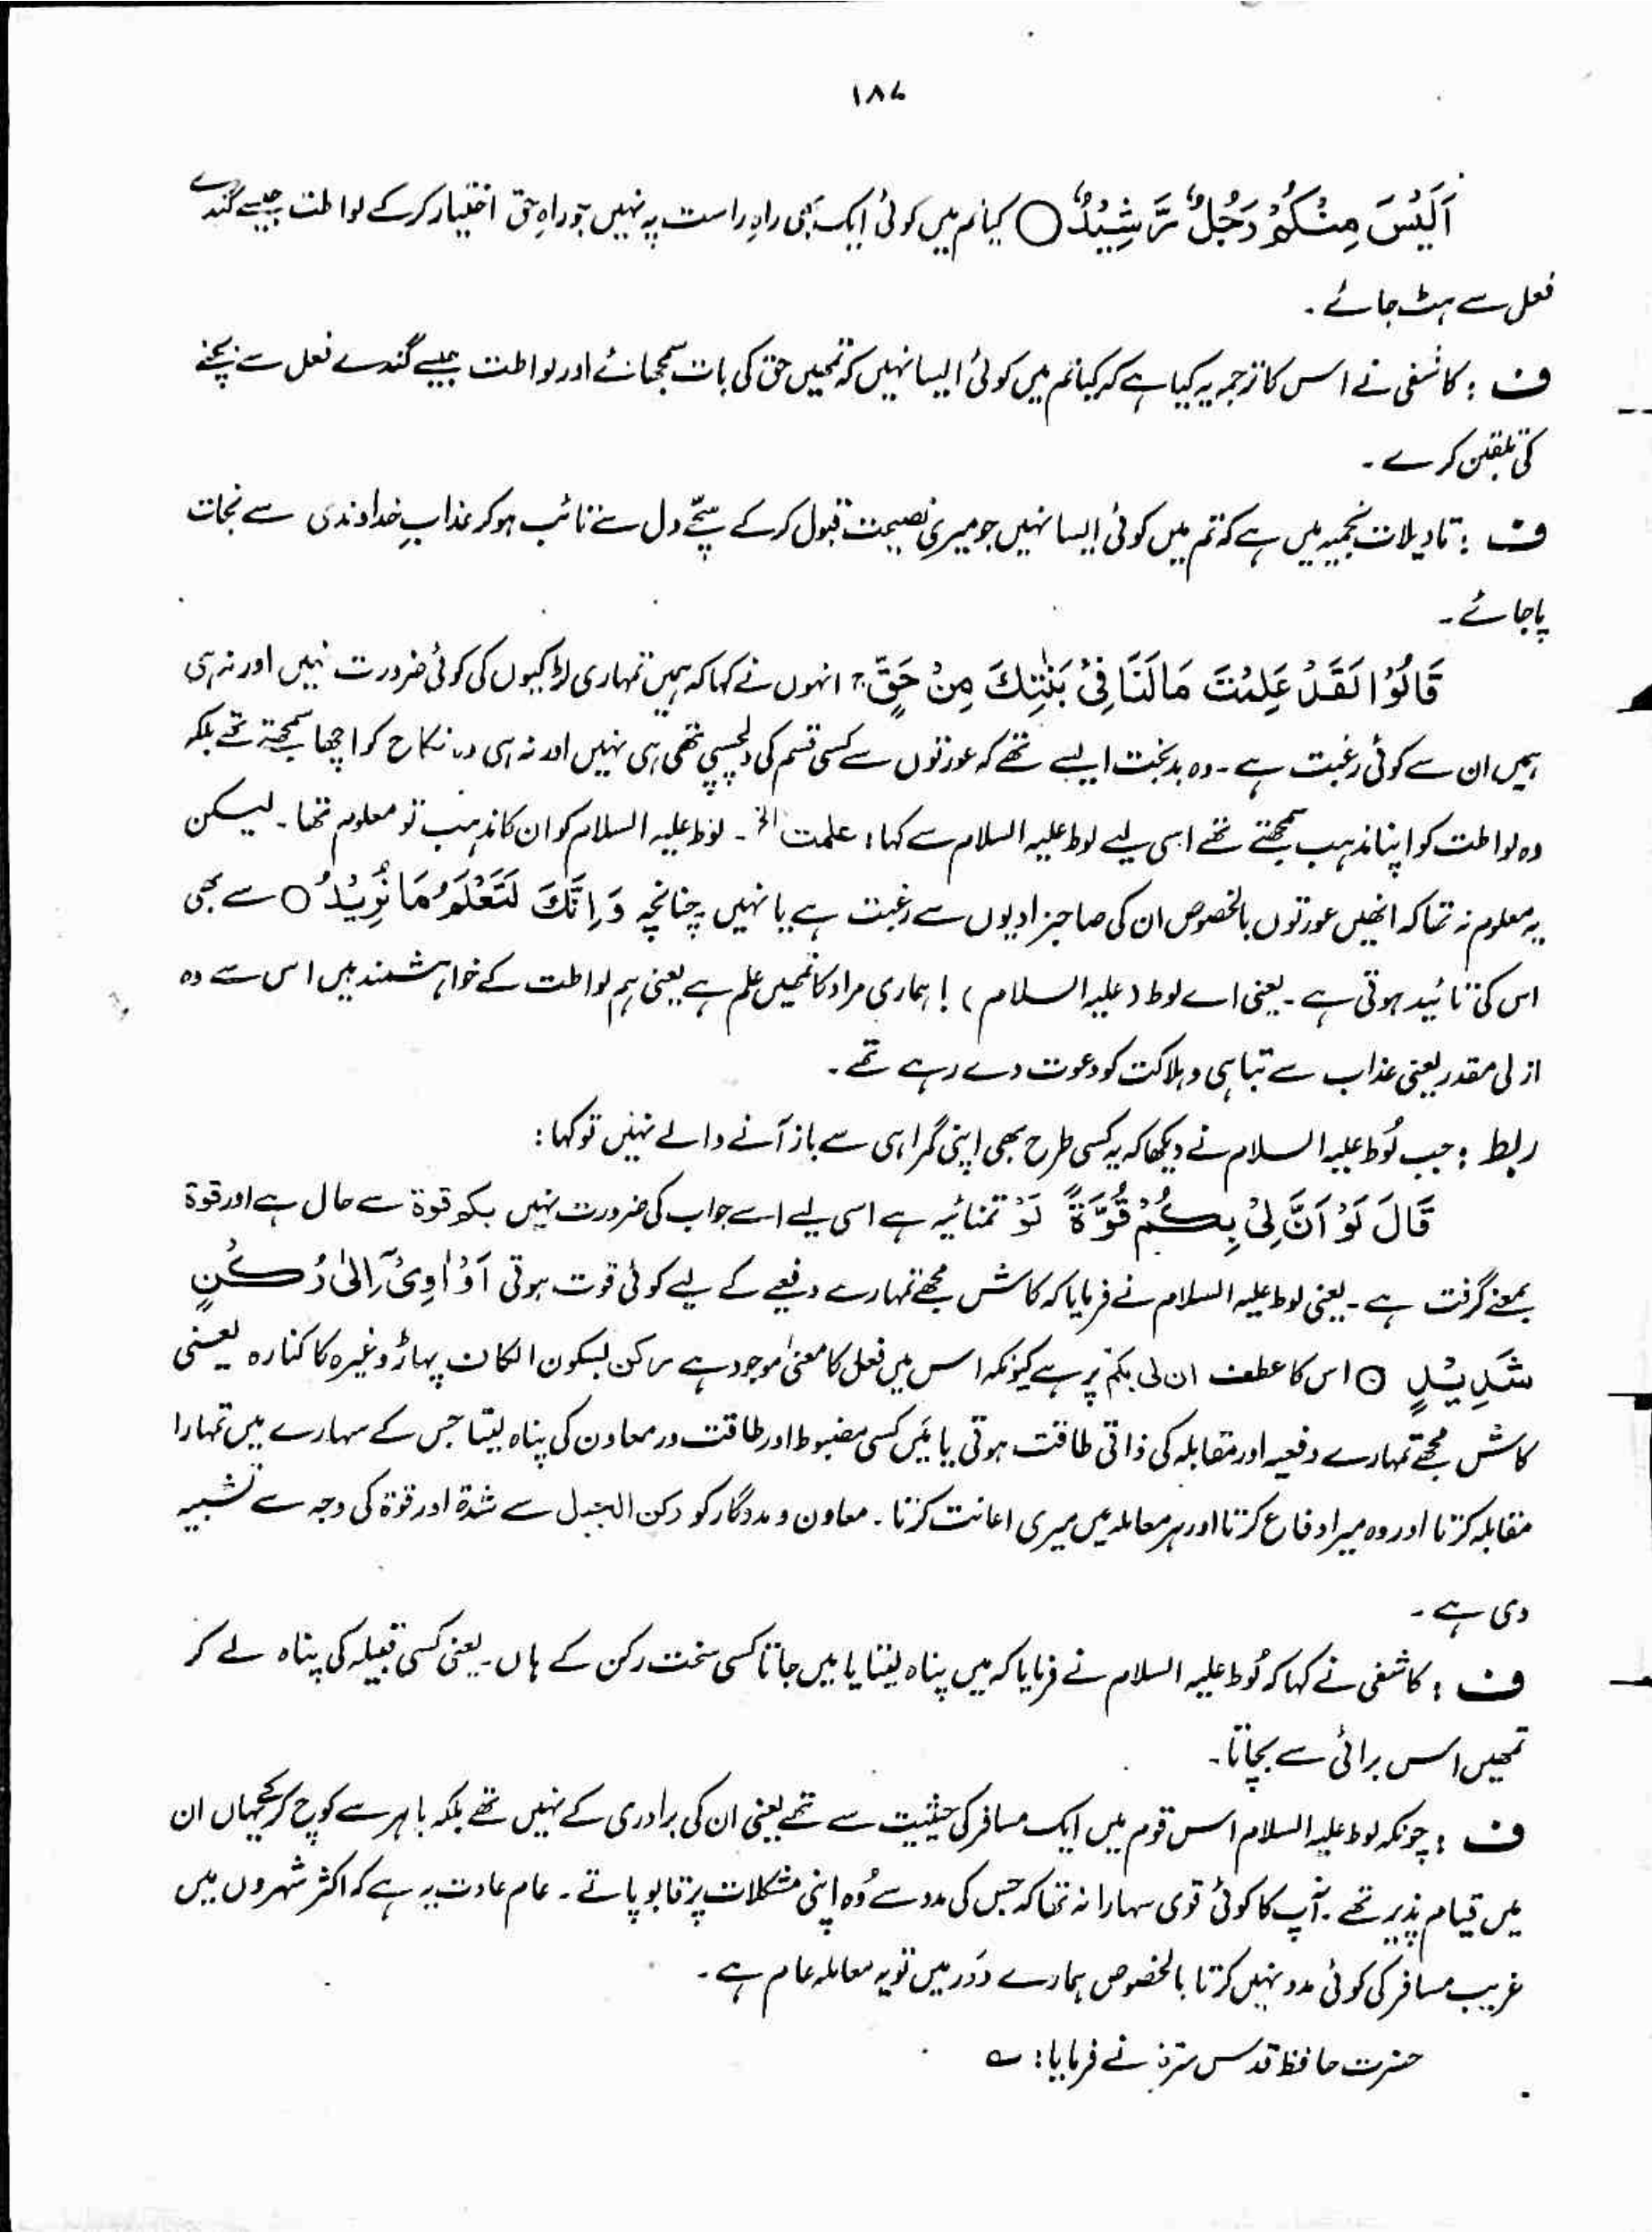 ۱۸۷
اَلَيْسَ مِنْكُمْ رَجُلٌ رَّشِيْدٌ ○ کیا تم میں کوئی ایک بھی راہِ راست پہ نہیں جو راہِ حق اختیار کرکے لواطت جیسے گندے
فعل سے ہٹ جائے۔
ف : کاشفی نے اس کا ترجمہ یہ کیا ہے کہ کیا تم میں کوئی ایسا نہیں کہ تمھیں حق کی بات سمجھائے اور لواطت جیسے گندے فعل سے بچنے
کی تلقین کرے۔
ف : تاویلات نجمیہ میں ہے کہ تم میں کوئی ایسا نہیں جو میری نصیحت قبول کرکے سچے دل سے تائب ہو کر عذابِ خداوندی سے نجات
پا جائے۔
قَالُوْا لَقَدْ عَلِمْتَ مَا لَنَا فِيْ بَنٰتِكَ مِنْ حَقٍّ ۚ انہوں نے کہا کہ ہمیں تمہاری لڑکیوں کی کوئی ضرورت نہیں اور نہ ہی
ہمیں ان سے کوئی رغبت ہے۔ وہ بدبخت ایسے تھے کہ عورتوں سے کسی قسم کی دلچسپی تھی ہی نہیں اور نہ ہی وہ نکاح کو اچھا سمجھتے تھے بلکہ
وہ لواطت کو اپنا مذہب سمجھتے تھے اسی لیے لوط علیہ السلام سے کہا : علمت الخ۔ لوط علیہ السلام کو ان کا مذہب تو معلوم تھا۔ لیکن
یہ معلوم نہ تھا کہ انھیں عورتوں بالخصوص ان کی صاحبزادیوں سے رغبت ہے یا نہیں چنانچہ وَاِنَّكَ لَتَعْلَمُ مَا نُرِيْدُ ○ سے بھی
اس کی تائید ہوتی ہے۔ یعنی اے لوط (علیہ السلام)! ہماری مراد کا تمھیں علم ہے یعنی ہم لواطت کے خواہشمند ہیں اس سے وہ
ازلی مقدر یعنی عذاب سے تباہی و ہلاکت کو دعوت دے رہے تھے۔
ربط : جب لُوط علیہ السلام نے دیکھا کہ یہ کسی طرح بھی اپنی گمراہی سے باز آنے والے نہیں تو کہا :
قَالَ لَوْ اَنَّ لِيْ بِكُمْ قُوَّةً لَوْ تمنائیہ ہے اسی لیے اسے جواب کی ضرورت نہیں بکم قوۃ سے حال ہے اور قوۃ
بمعنے گرفت ہے۔ یعنی لوط علیہ السلام نے فرمایا کہ کاش مجھے تمہارے دفیعے کے لیے کوئی قوت ہوتی اَوْ اٰوِيْٓ اِلٰى رُكْنٍ
شَدِيْدٍ ○ اس کا عطف ان لی بکم پر ہے کیونکہ اس میں فعل کا معنیٰ موجود ہے رکن بسکون الکاف پہاڑ وغیرہ کا کنارہ یعنی
کاش مجھے تمہارے دفعیہ اور مقابلہ کی ذاتی طاقت ہوتی یا میَں کسی مضبوط اور طاقت ور معاون کی پناہ لیتا جس کے سہارے میں تمہارا
مقابلہ کرتا اور وہ میرا دفاع کرتا اور ہر معاملہ میں میری اعانت کرتا۔ معاون و مددگار کو رکن الجبل سے شدۃ اور قوۃ کی وجہ سے تشبیہ
دی ہے۔
ف : کاشفی نے کہا کہ لُوط علیہ السلام نے فرمایا کہ میں پناہ لیتا یا میں جاتا کسی سخت رکن کے ہاں۔ یعنی کسی قبیلہ کی پناہ لے کر
تمھیں اس برائی سے بچاتا۔
ف : چونکہ لوط علیہ السلام اس قوم میں ایک مسافر کی حیثیت سے تھے یعنی ان کی برادری کے نہیں تھے بلکہ باہر سے کوچ کرکے یہاں ان
میں قیام پذیر تھے۔ آپ کا کوئی قوی سہارا نہ تھا کہ جس کی مدد سے وُہ اپنی مشکلات پر قابو پاتے۔ عام عادت یہ ہے کہ اکثر شہروں میں
غریب مسافر کی کوئی مدد نہیں کرتا بالخصوص ہمارے دَور میں تو یہ معاملہ عام ہے۔
حضرت حافظ قدس سرہٗ نے فرمایا : ؎